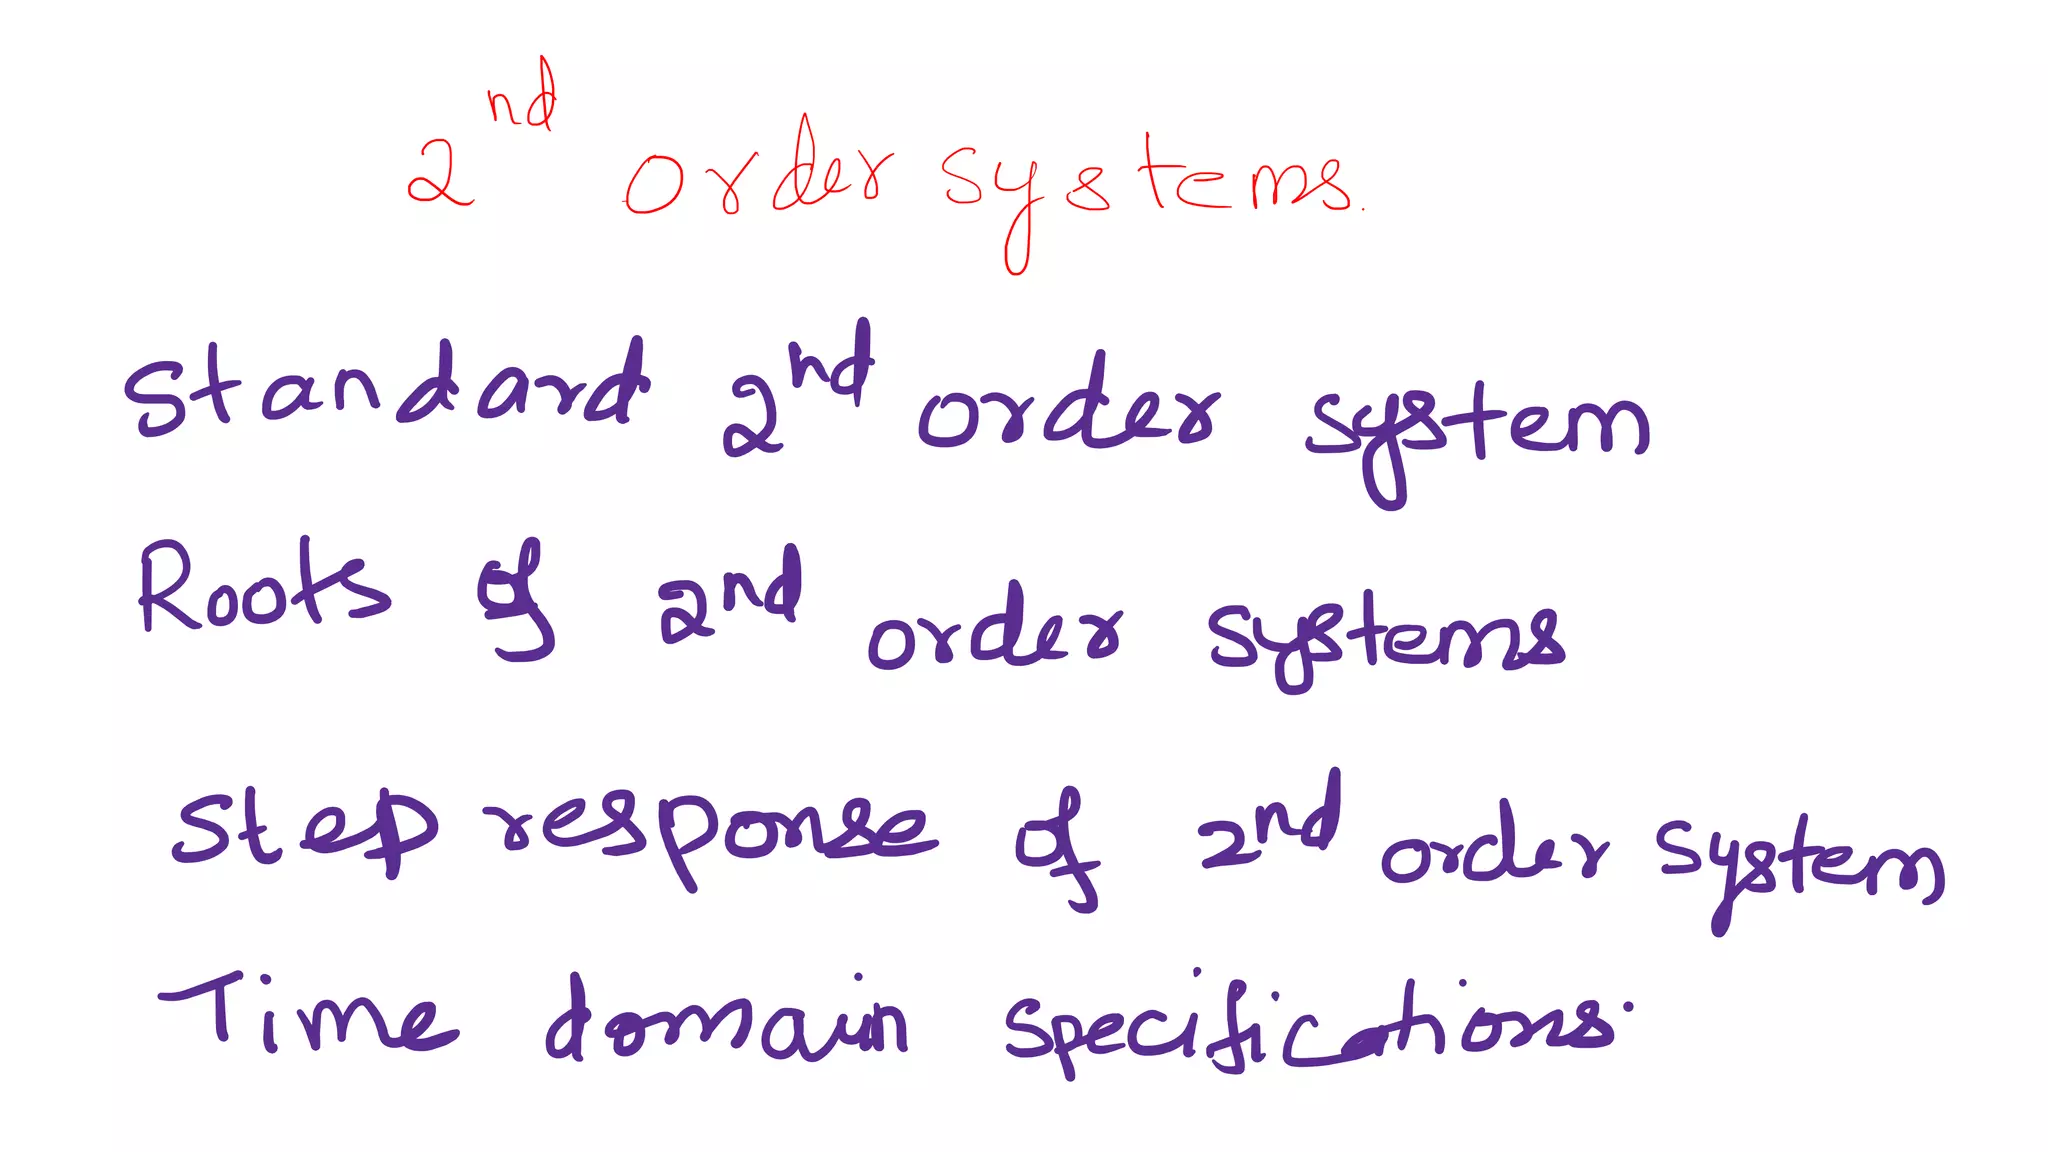 2nd order systems.
Standard 2nd order system
Roots of 2nd order systems
Step response of 2nd order system
Time domain specifications.